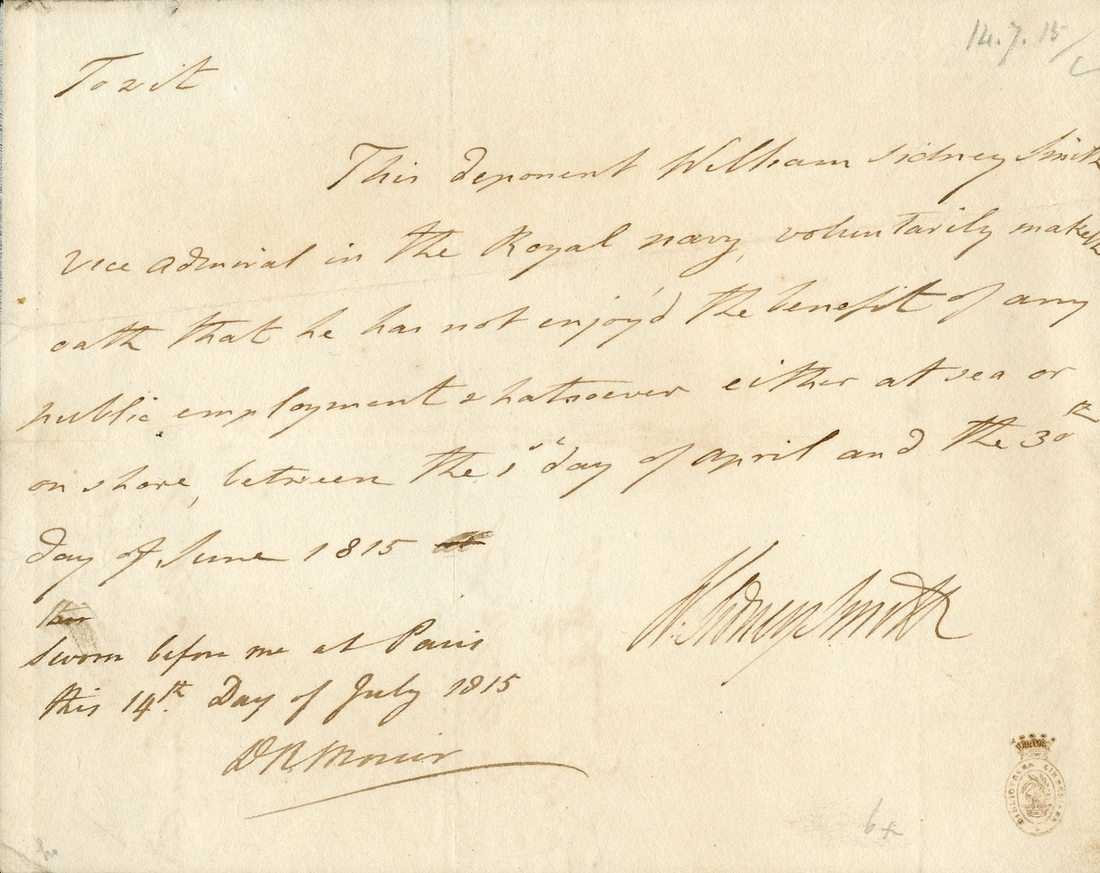 14.7.15
To wit
This deponent William Sidney Smith
vice admiral in the Royal navy, voluntarily maketh
oath that he has not enjoy'd the benefit of any
public employment whatsoever either at sea or
on shore, between the 1st day of april and the 30th
day of June 1815
W. Sidney Smith
Sworn before me at Paris
this 14th. Day of July 1815
D R Morier
BIBLIOTHECA LINDESIANA